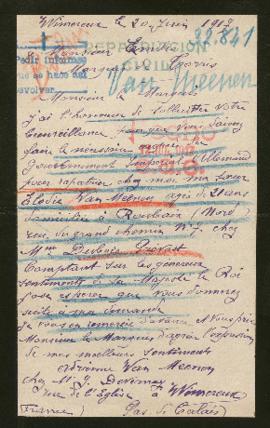 Wimereux le 20 Juin 1917
32.841
REPARATRICION
CIVIL
Monsieur Emilio
Marquis
Pedir informes
Van Meenen
devolver.
Monsieur le Marquis
J'ai l'honneur de solliciter votre
bienveillance pour que vous
faire le nécessaire
Gouvernement Impérial Allemand
pour rapatrier chez moi ma soeur
Elodie Van Meenen agée de 21 ans
domiciliée à Roubaix (Nord)
rue du grand chemin Nº chez
Mme Dubois Prévost
Comptant sur les généreux
sentiments de Sa Majesté le Roi
j'ose espérer que vous donnerez
suite à ma demande
Je vous en remercie d'avance et vous prie
Monsieur le Marquis d'agréer l'expression
de mes meilleurs sentiments
Van Meenen
chez Mr
rue de l'Eglise à Wimereux
(France) Pas de Calais